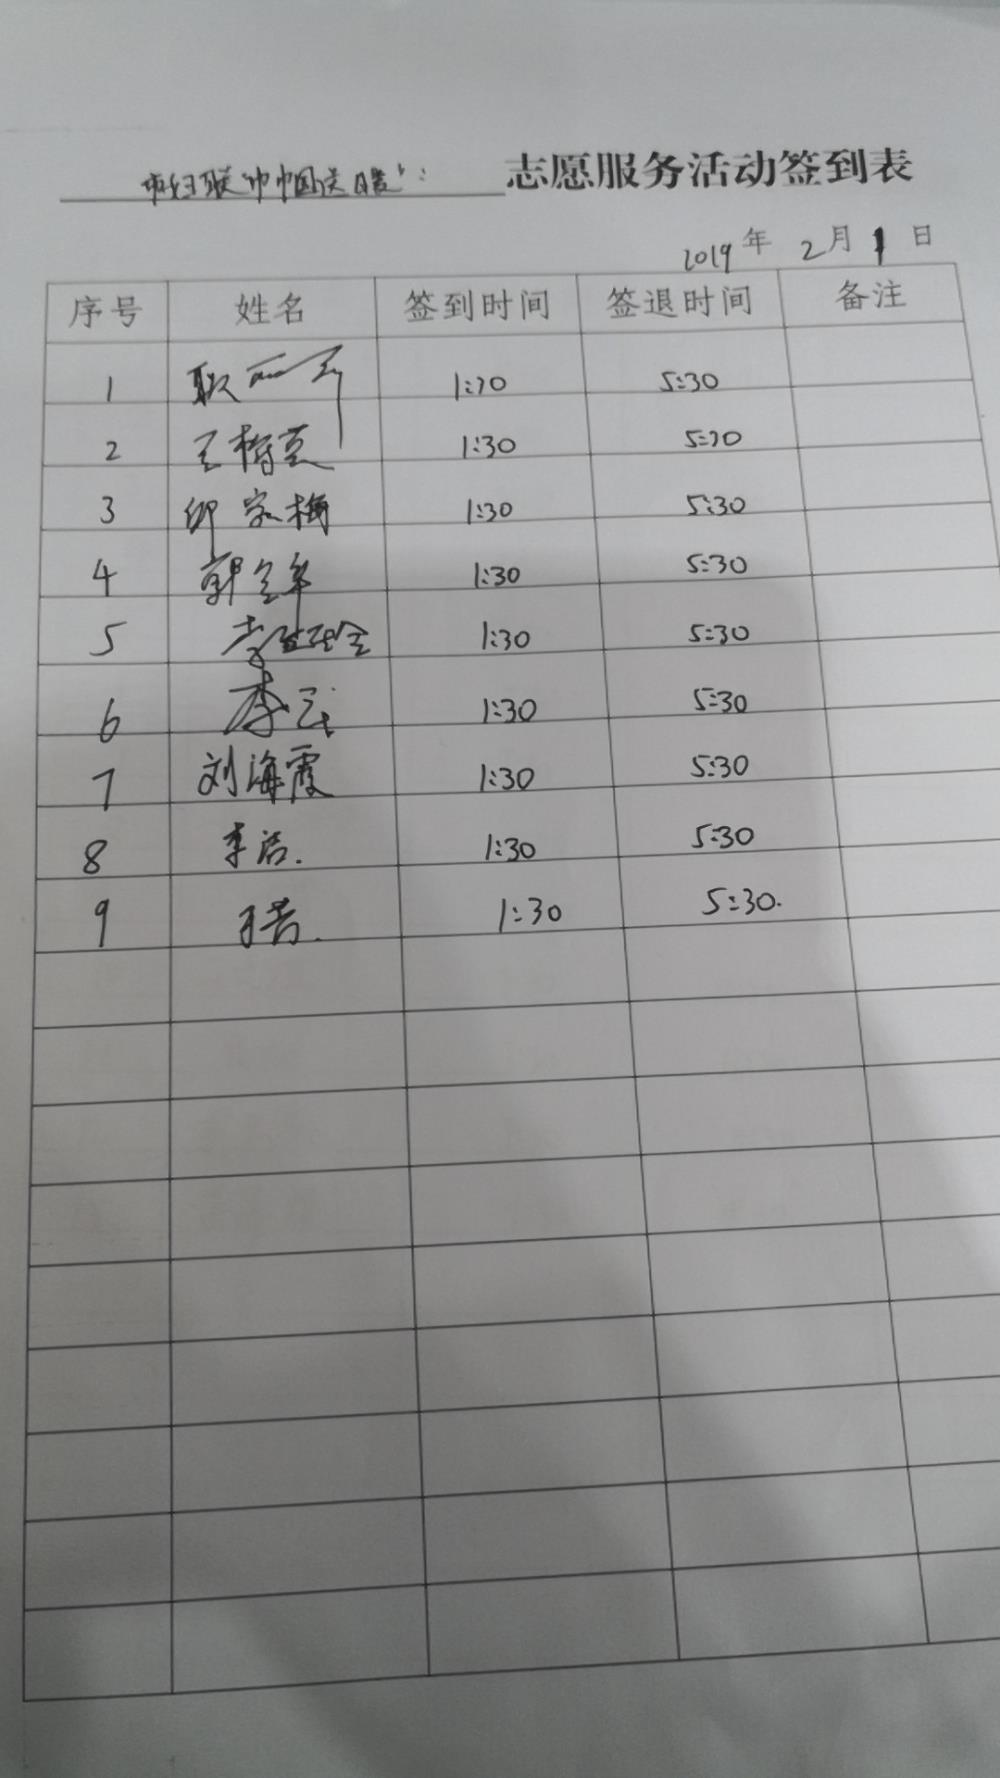 市妇联"巾帼送温暖": 志愿服务活动签到表
2019年 2月 1日
序号 姓名 签到时间 签退时间 备注
1 耿 1:30 5:30
2 王梅 1:30 5:30
3 邱家梅 1:30 5:30
4 郭全 1:30 5:30
5 李 1:30 5:30
6 李云 1:30 5:30
7 刘海霞 1:30 5:30
8 李洁. 1:30 5:30
9 1:30 5:30.